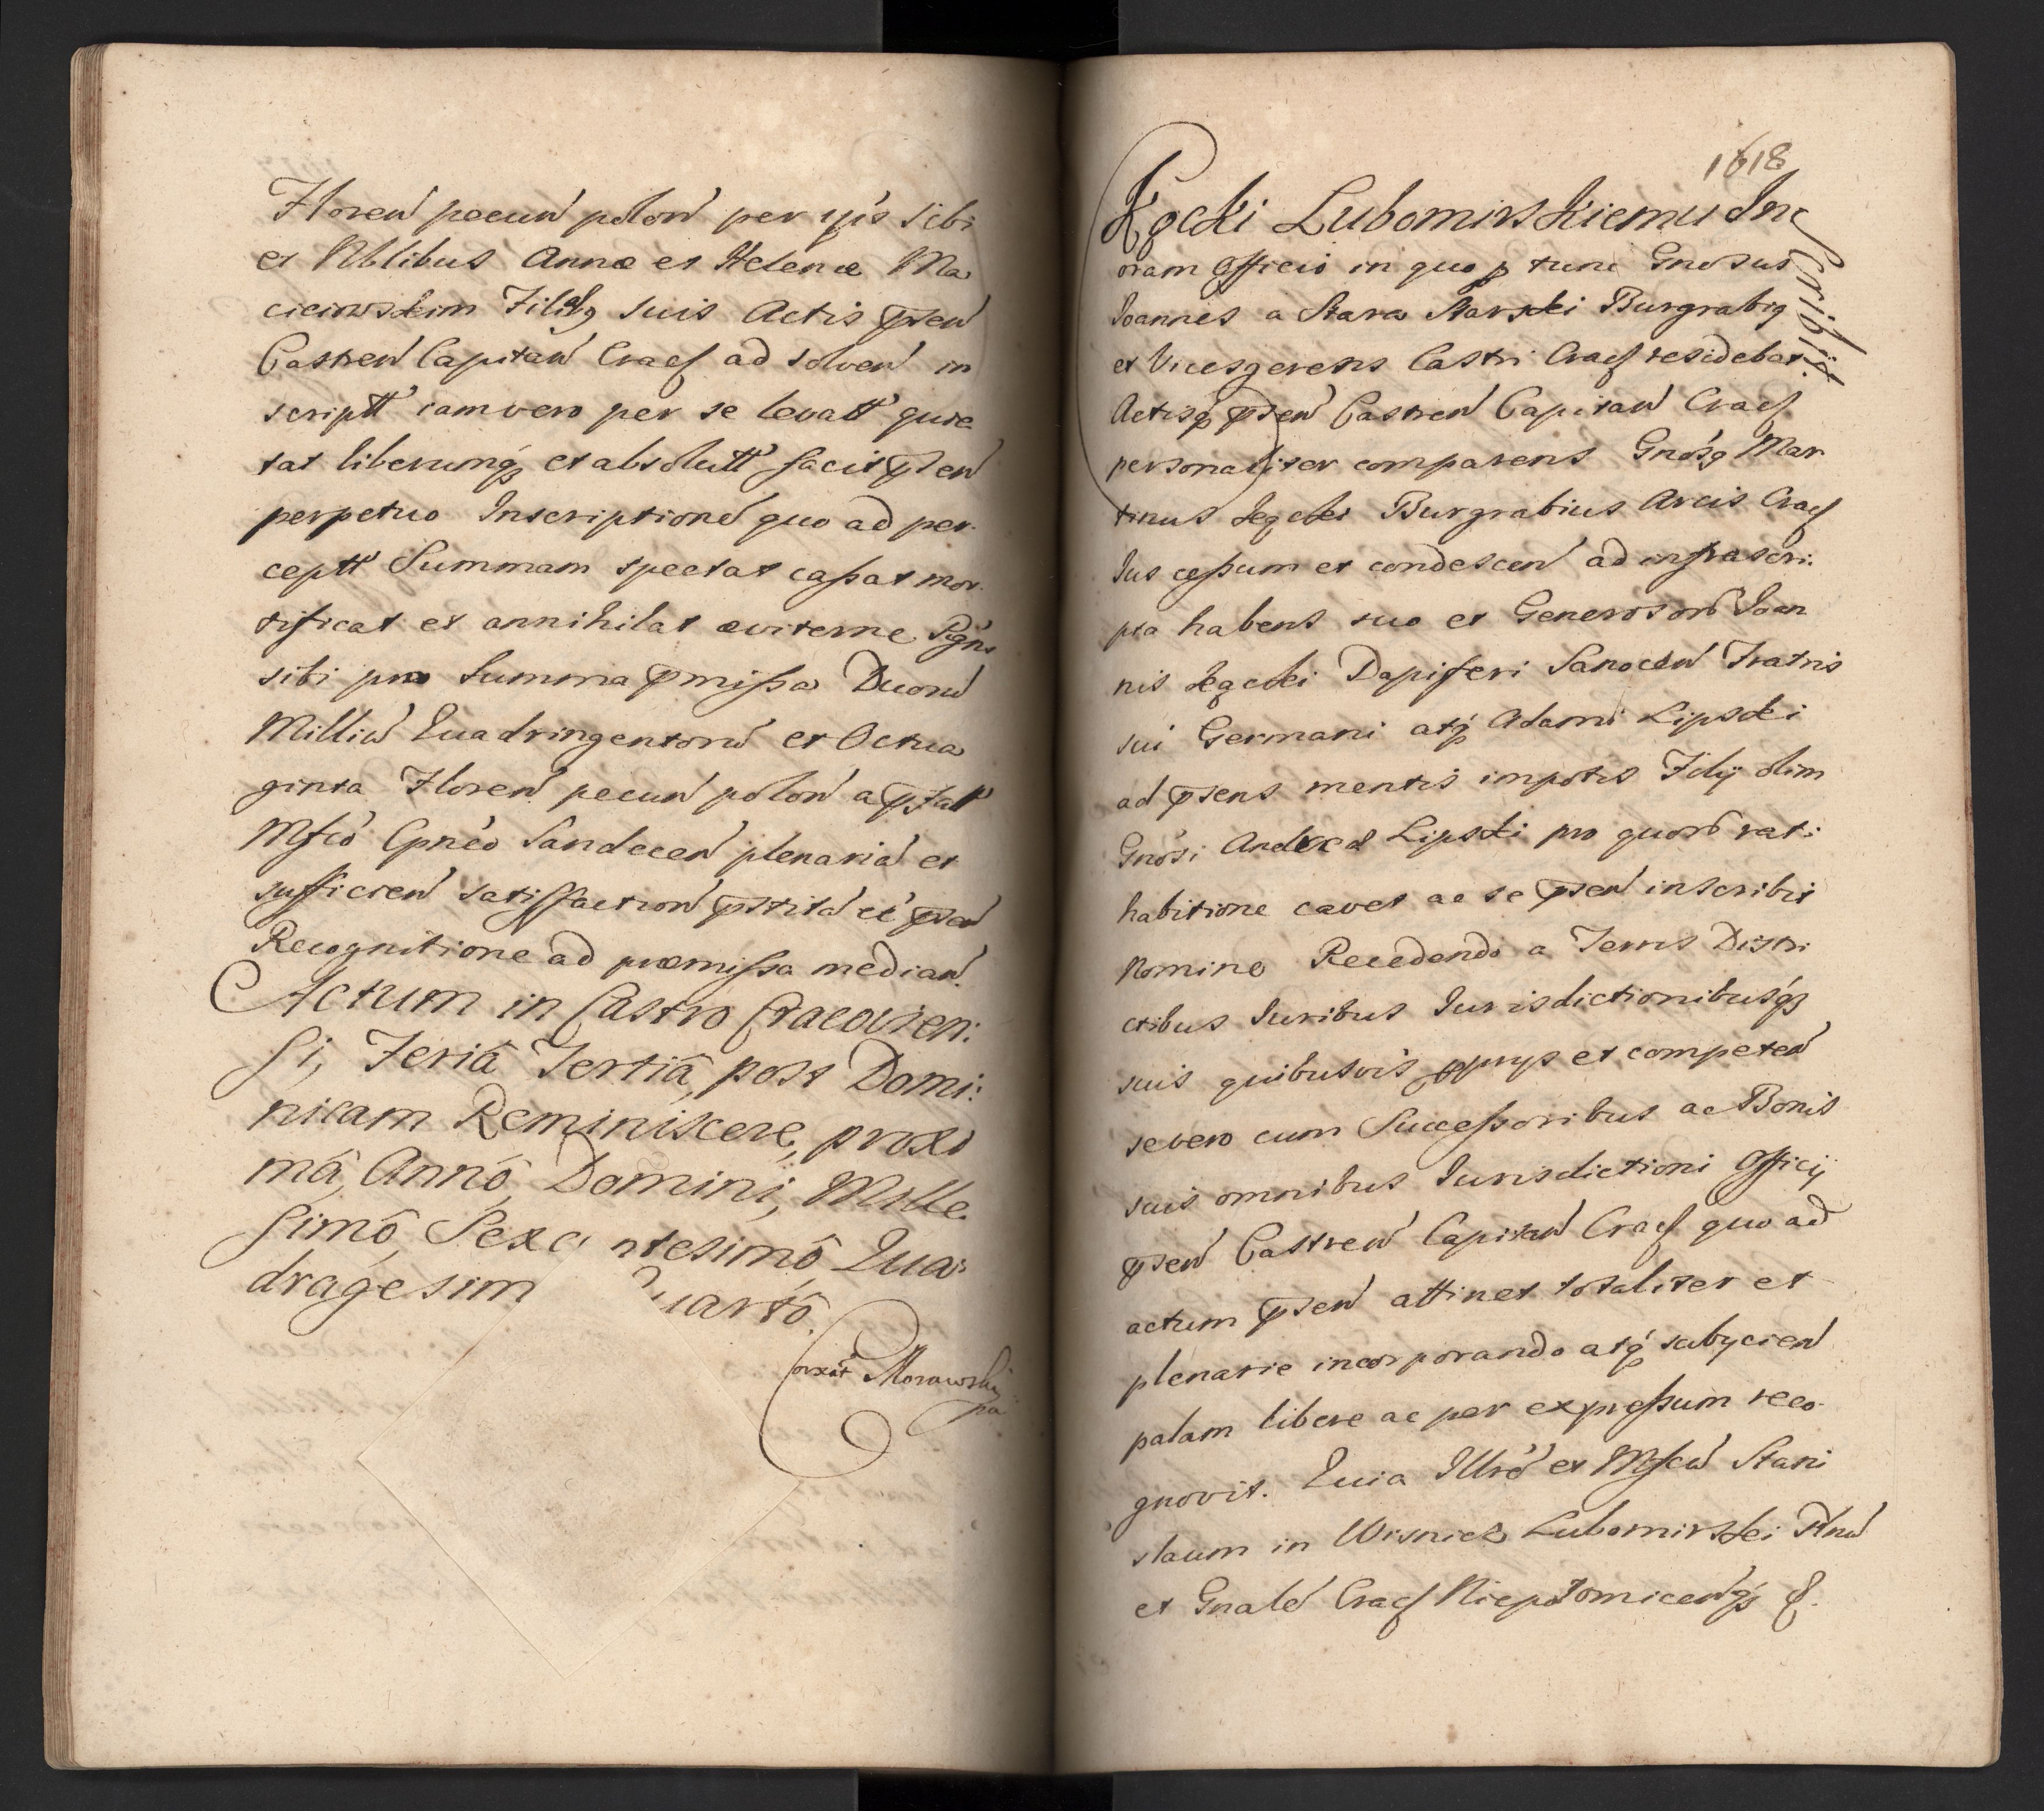 Floren̄ pecun̄ polon̄ per ip̄s sibi
et Nblibus Annæ et Helenæ Ma
cieiowskim Filiabq suis Actis p̄sen̄
Castren̄ Capitan̄ Cracȝ ad solven̄ in
scriptt̄ iam vero per se levatt̄ quie
tat liberumq́ et absolutt̄ facit p̄sen̄
perpetuo Inscriptionē quo ad per
ceptt̄ Summam spectat cassat mor
tificat et annihilat æviterne
sibi pro Summa p̄missa Duorū
Milliū Quadringentorū et Octua
ginta Floren̄ pecun̄ polon̄ a p̄fatt̄
Mfcō Cpnēo Sandecen̄ plenariā et
sufficien̄ satisfaction̄ p̄stitā eē p̄sen̄
Recognitione ad præmissa median̄.
Actum in Castro Cracovien:
si, Feriâ Tertiâ, post Domi:
nicam Reminiscere, proxi
mâ, Annô, Domini, Mille
simô, Sexc ntesimô Qua:
dragesim Quartô.
Corxāt Morawski
pa
1618
Kącki Lubomirskiemu In
scribit.
oram Officio in quo p tunc Gnosus
Joannes a Stara Starski Burgrabiq
et Vicesgerens Castri Cracȝ residebat.
Actisq́ p̄sen̄ Castren̄ Capitan̄ Cracȝ
personaliter comparens Gnōsq Mar
tinus Kącki Burgrabius Arcis Cracȝ
Jus cessum et condescen̄ ad infrascri:
pta habens suo et Generosorū Joan
nis Kącki Dapiferi Sanocen̄ Fratris
sui Germani atq́ Adami Lipski
ad p̄sens mentis impotis Filij olim
Gnōsi Andreæ Lipski pro quorū rati
habitione cavet ac se p̄sen̄ inscribit
Nomine Recedendo a Terris Distri
ctibus Juribus Jurisdictionibusq́
suis quibusvis pprijs et competen̄
se vero cum Successoribus ac Bonis
suis omnibus Jurisdictioni Officij
p̄sen̄ Castren̄ Capitan̄ Cracȝ quo ad
actum p̄sen̄ attinet totaliter et
plenarie incorporando atq́ subijcien̄
palam libere ac per expressum reco
gnovit. Quia Illrē et Mfcū Stani
slaum in Wisnicz Lubomirski Pltnū
et Gnalē Cracȝ Niepołomicenq́ &.